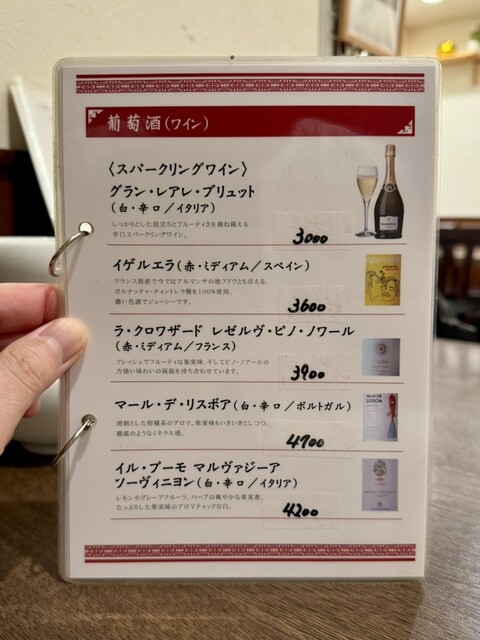 葡萄酒(ワイン)
〈スパークリングワイン〉
グラン・レアレ・ブリュット
(白・辛口/イタリア)
しっかりとした泡立ちとフルーティさを兼ね揃える
辛口スパークリングワイン。
3000
イゲルエラ(赤・ミディアム/スペイン)
フランス原産で今ではアルマンサの地ブドウとも言える、
ガルナッチャ・ティントレラ種を100%使用、
濃い色調でジューシーです。
3600
ラ・クロワザード レゼルヴ・ピノ・ノワール
(赤・ミディアム/フランス)
フレッシュでフルーティな果実味、そしてピノ・ノアールの
力強い味わいの両面を持ち合わせています。
3900
マール・デ・リスボア(白・辛口/ポルトガル)
溌剌とした柑橘系のアロマ。果実味もいきいきとしつつ、
潮風のようなミネラル感。
LISBOA
4700
イル・プーモ マルヴァジーア
ソーヴィニヨン(白・辛口/イタリア)
レモンやグレープフルーツ、ハーブの爽やかな果実香。
たっぷりした果実味のアロマティックな白。
4200